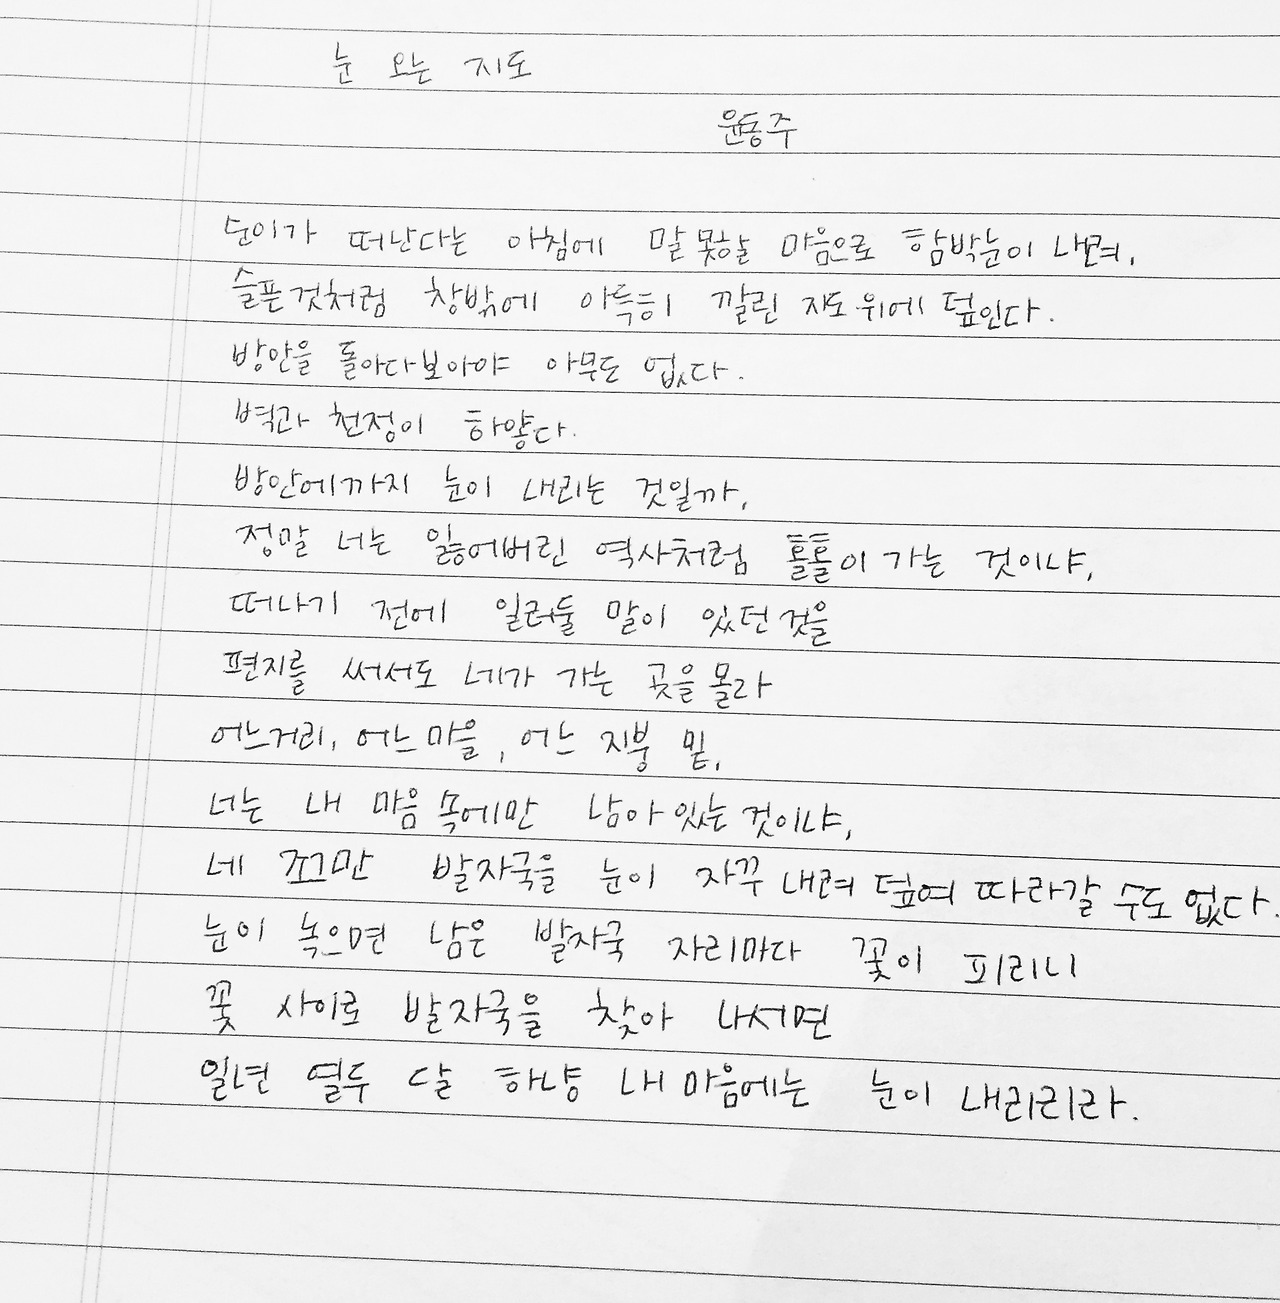 눈 오는 지도
윤동주
순이가 떠난다는 아침에 말 못할 마음으로 함박눈이 내려,
슬픈 것처럼 창밖에 아득히 깔린 지도 위에 덮인다.
방안을 돌아다보아야 아무도 없다.
벽과 천정이 하얗다.
방안에까지 눈이 내리는 것일까,
정말 너는 잃어버린 역사처럼 홀홀이 가는 것이냐,
떠나기 전에 일러둘 말이 있던 것을
편지를 써서도 네가 가는 곳을 몰라
어느거리, 어느 마을, 어느 지붕 밑,
너는 내 마음 속에만 남아 있는 것이냐,
네 쪼그만 발자국을 눈이 자꾸 내려 덮여 따라갈 수도 없다.
눈이 녹으면 남은 발자국 자리마다 꽃이 피리니
꽃 사이로 발자국을 찾아 나서면
일년 열두 달 하냥 내 마음에는 눈이 내리리라.